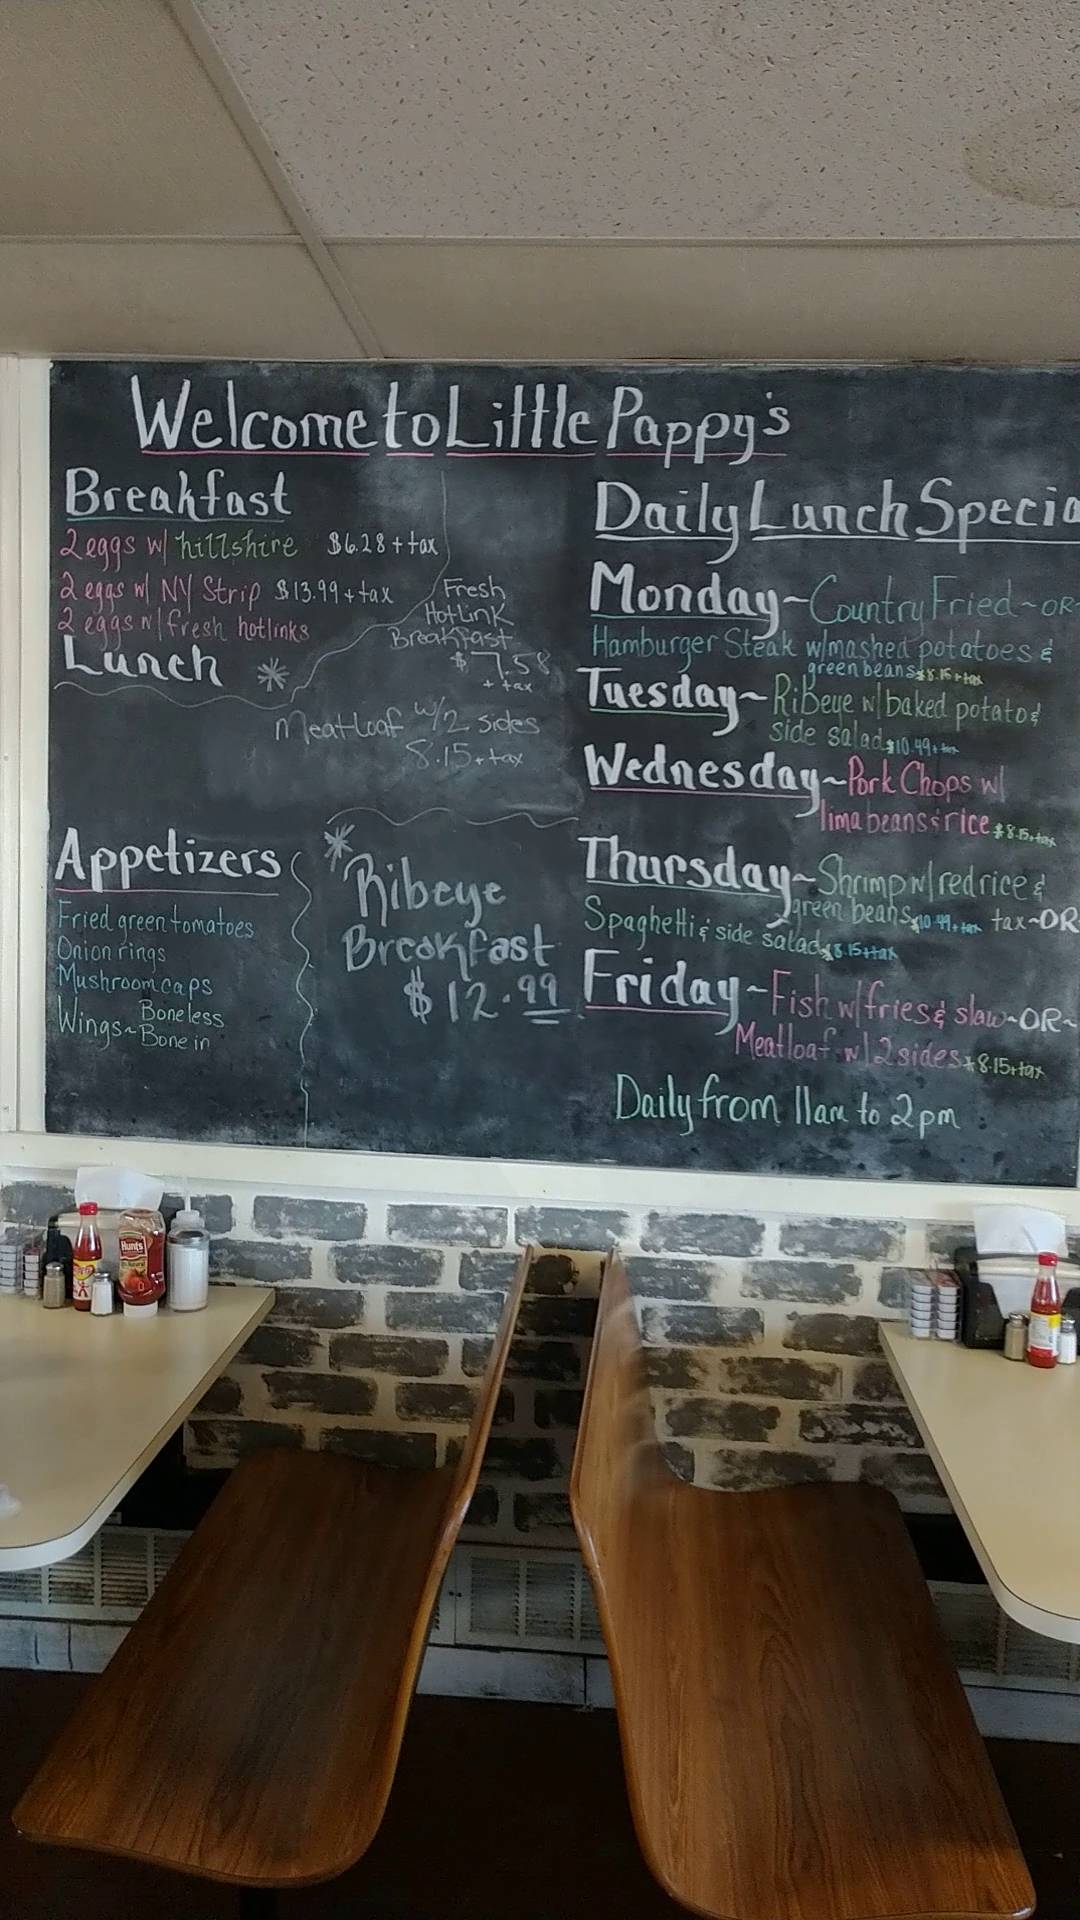 Welcome to Little Pappy's
Breakfast
2 eggs w/ hillshire $6.28 + tax
2 eggs w/ NY Strip $13.99 + tax
2 eggs w/ fresh hotlinks
Fresh
HotLink
Breakfast
$7.58
+ tax
Lunch
Meatloaf w/2 sides
8.15 + tax
Appetizers
Fried green tomatoes
Onion rings
Mushroom caps
Wings~ Boneless
Bone in
Ribeye
Breakfast
$12.99
Daily Lunch Specia
Monday~ Country Fried ~OR
Hamburger Steak w/mashed potatoes &
green beans $8.15+tax
Tuesday~ RiBeye w/ baked potato &
side salad $10.49+tax
Wednesday~ Pork Chops w/
lima beans & rice $8.15+tax
Thursday~ Shrimp w/ red rice &
green beans $10.49+tax tax~OR
Spaghetti & side salad $8.15+tax
Friday~ Fish w/fries & slaw ~OR~
Meatloaf w/2 sides $8.15+tax
Daily from 11am to 2pm
Hunt's